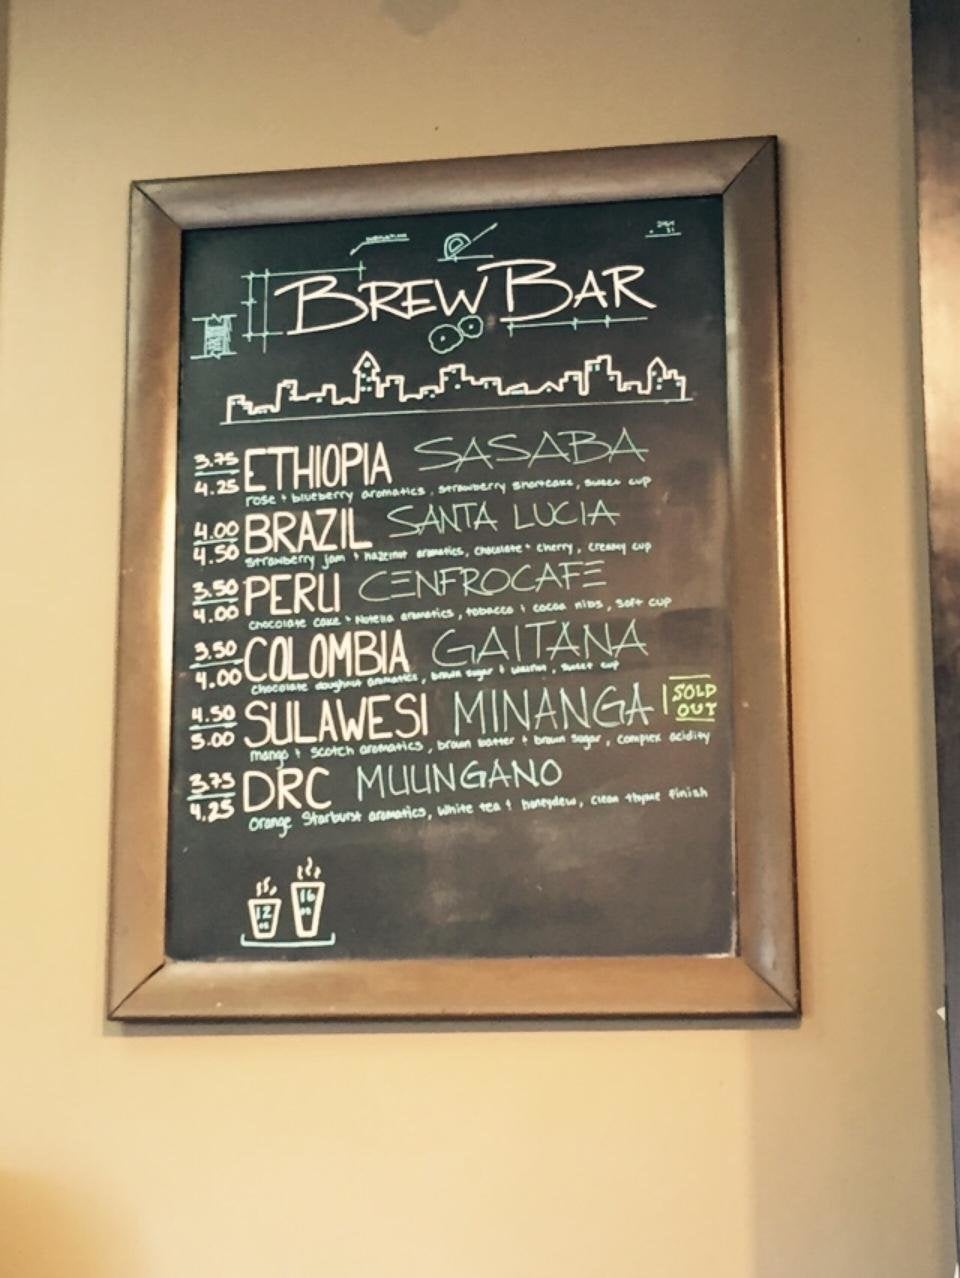 BREW BAR
3.75
4.25
ETHIOPIA SASABA
rose + blueberry aromatics, strawberry shortcake, sweet cup
4.00
4.50
BRAZIL SANTA LUCIA
strawberry jam + hazelnut aromatics, chocolate + cherry, creamy cup
3.50
4.00
PERU CENFROCAFE
chocolate cake + Nutella aromatics, tobacco + cocoa nibs, soft cup
3.50
4.00
COLOMBIA GAITANA
chocolate doughnut aromatics, brown sugar + walnut, sweet cup
4.50
5.00
SULAWESI MINANGA
SOLD
OUT
mango + scotch aromatics, brown butter + brown sugar, complex acidity
3.75
4.25
DRC MUUNGANO
Orange Starburst aromatics, white tea + honeydew, clean thyme finish
12
oz
16
oz